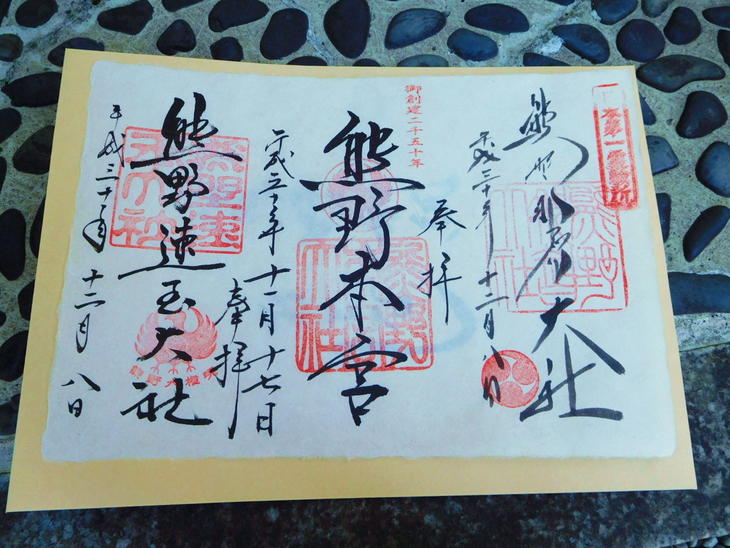 日本第一霊験所
熊野那智大社
平成三十年十二月八日
奉拝
御創建二千五十年
熊野本宮
平成三十年十一月十七日
奉拝
熊野速玉大社
熊野大權現
平成三十年十二月八日